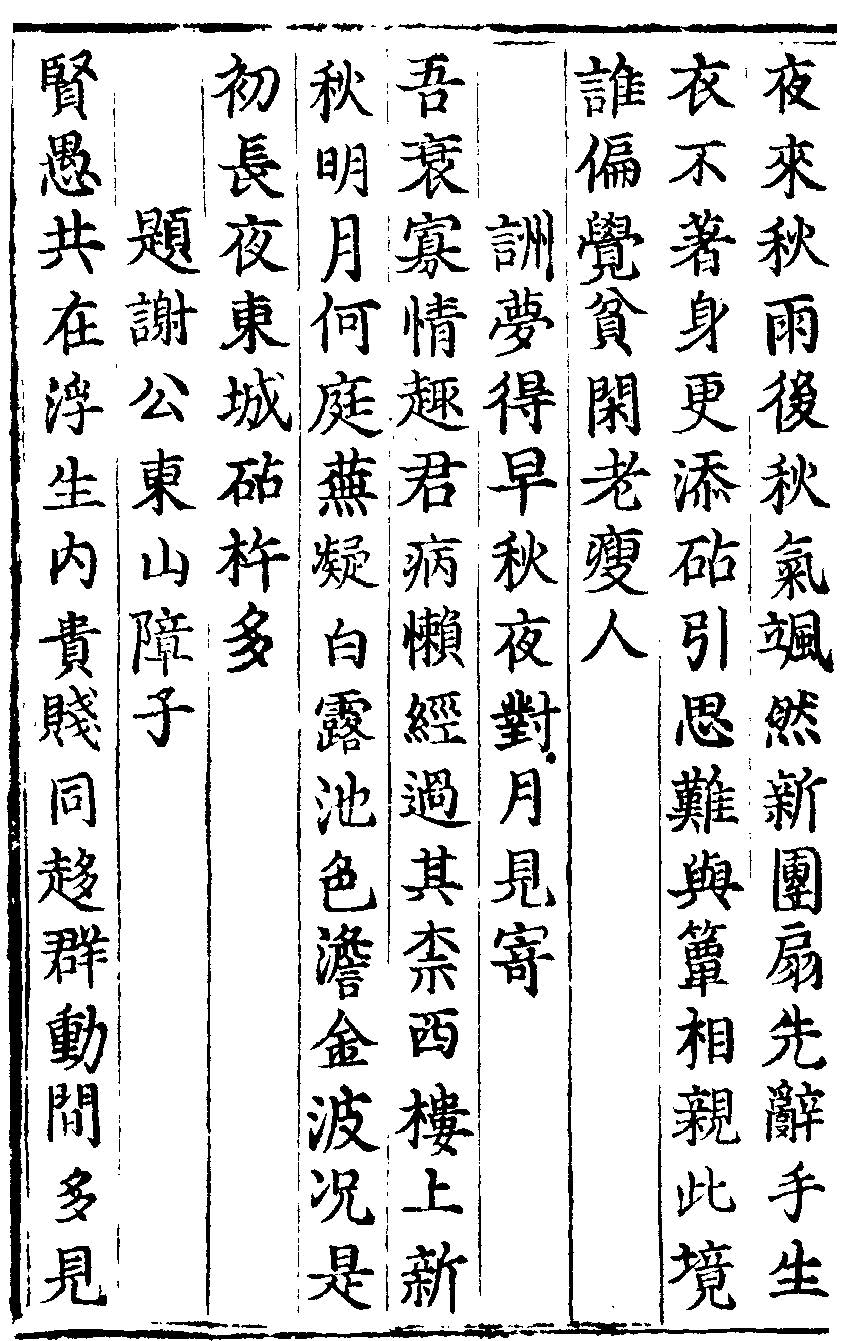 夜來秋雨後秋氣颯然新團扇先辭手生
衣不著身更添砧引思難與簟相親此境
誰偏覺貧閑老瘦人
詶夢得早秋夜對月見寄
吾衰寡情趣君病懶經過其柰西樓上新
秋明月何庭蕪凝白露池色澹金波况是
初長夜東城砧杵多
題謝公東山障子
賢愚共在浮生内貴賤同趍群動間多見